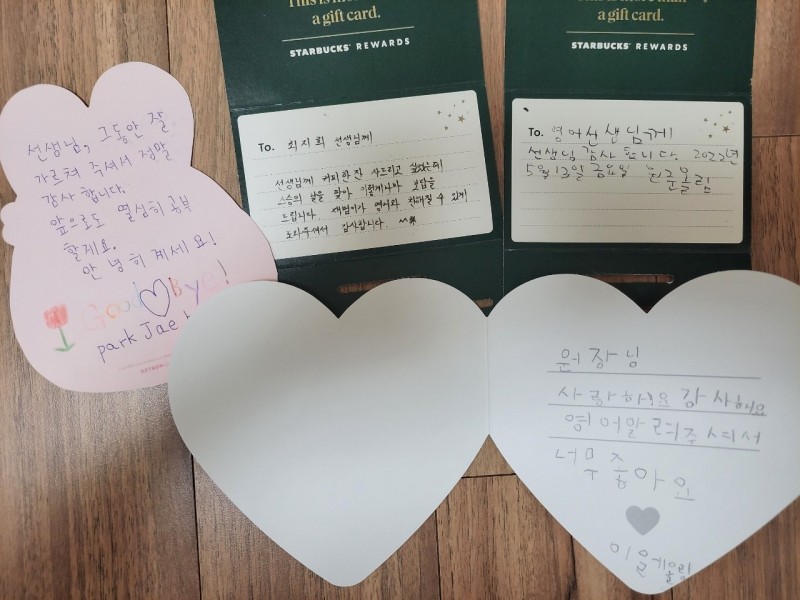 선생님, 그동안 잘
가르쳐 주셔서 정말
감사 합니다.
앞으로도 열심히 공부
할게요.
안녕히 계세요!
Good Bye!
park Jae
a gift card.
STARBUCKS® REWARDS
To. 최지희 선생님께
선생님께 커피 한잔 사드리고 싶었는데
스승의 날을 맞아 이렇게나마 보답을
드립니다. 새벽이가 영어와 친해질 수 있게
도와주셔서 감사합니다. ^^
a gift card.
STARBUCKS® REWARDS
To. 영어선생님께
선생님 감사 합니다. 2022년
5월 13일 금요일
원장님
사랑하해요 감사해요
영어알려주셔서
너무 좋아요